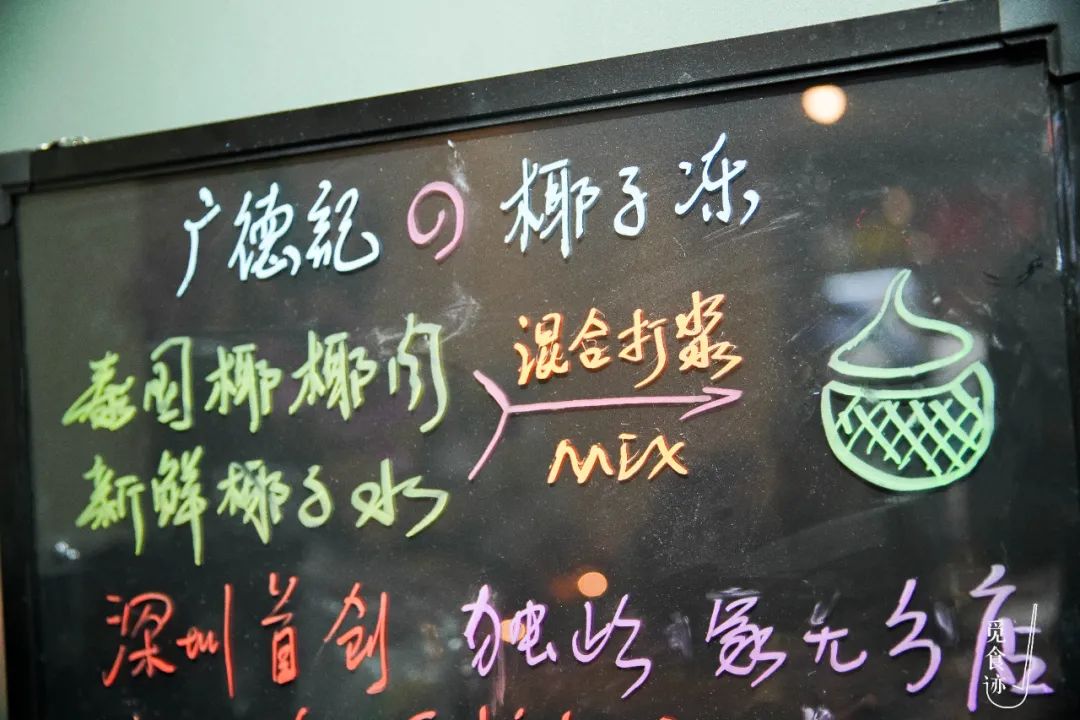 广德記の椰子冻
泰国椰椰肉
新鲜椰子水
混合打浆
MIX
深圳首创 独此家无分店
觅食迹